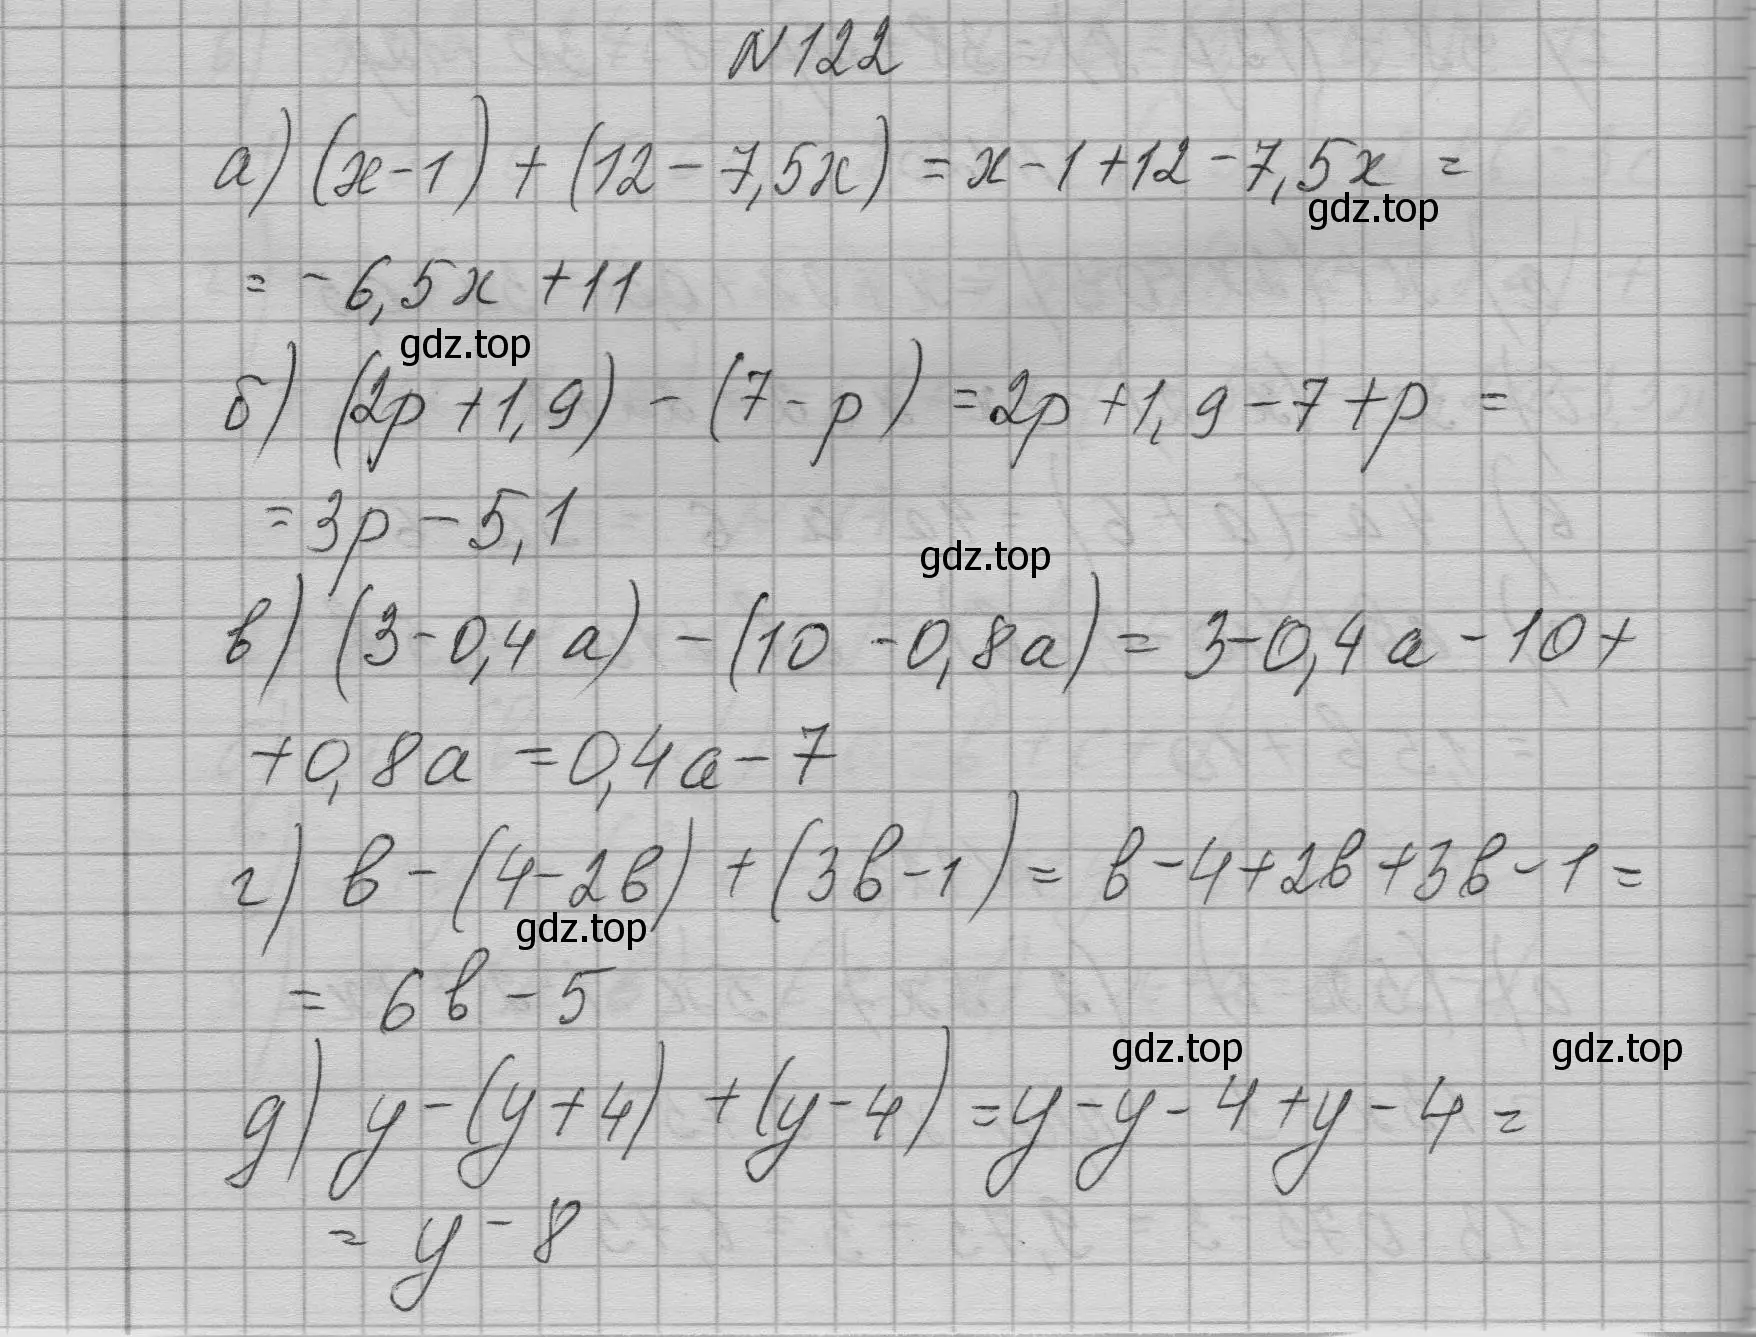 N 122
а) (x-1) + (12 - 7,5x) = x - 1 + 12 - 7,5x =
gdz.top
= -6,5x + 11
gdz.top
б) (2p + 1,9) - (7 - p) = 2p + 1,9 - 7 + p =
= 3p - 5,1
gdz.top
в) (3 - 0,4a) - (10 - 0,8a) = 3 - 0,4a - 10 +
+ 0,8a = 0,4a - 7
г) b - (4 - 2b) + (3b - 1) = b - 4 + 2b + 3b - 1 =
gdz.top
= 6b - 5
gdz.top gdz.top
д) y - (y + 4) + (y - 4) = y - y - 4 + y - 4 =
= y - 8